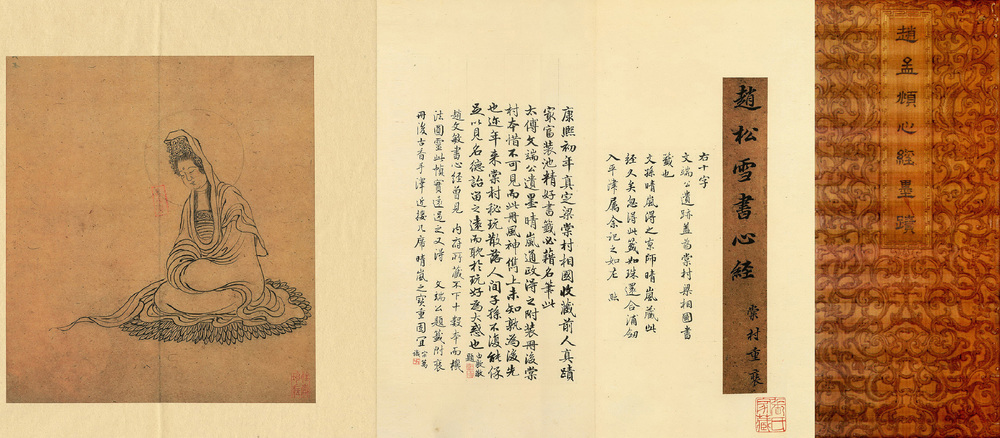 趙孟頫心經墨蹟
趙松雪書心經
棠村重裝
右十字
文端公遺跡蓋為棠村梁相國書
籤也
文孫晴嵐得之京師晴嵐藏此
經久矣忽得此籤如珠還合浦劒
入平津屬余記之如左
康熙初年真定梁棠村相國收藏前人真蹟
家富裝池精好書籤必藉名筆此
太傅文端公遺墨晴嵐通政得之附裝冊後棠
村本惜不可見而此冊風神儁上未知孰為後先
也近年來棠村秘玩散落人間子孫不復能保
足以見名德詒留之遠而耽於玩好為大惑也
由敦敬題
趙文敏書心經曾見 內府所藏不下十數本而機
法圓靈此幀實遠過之又得 文端公題籤附裝
冊後古香手澤近接几席晴嵐之寶重固宜
張氏家藏